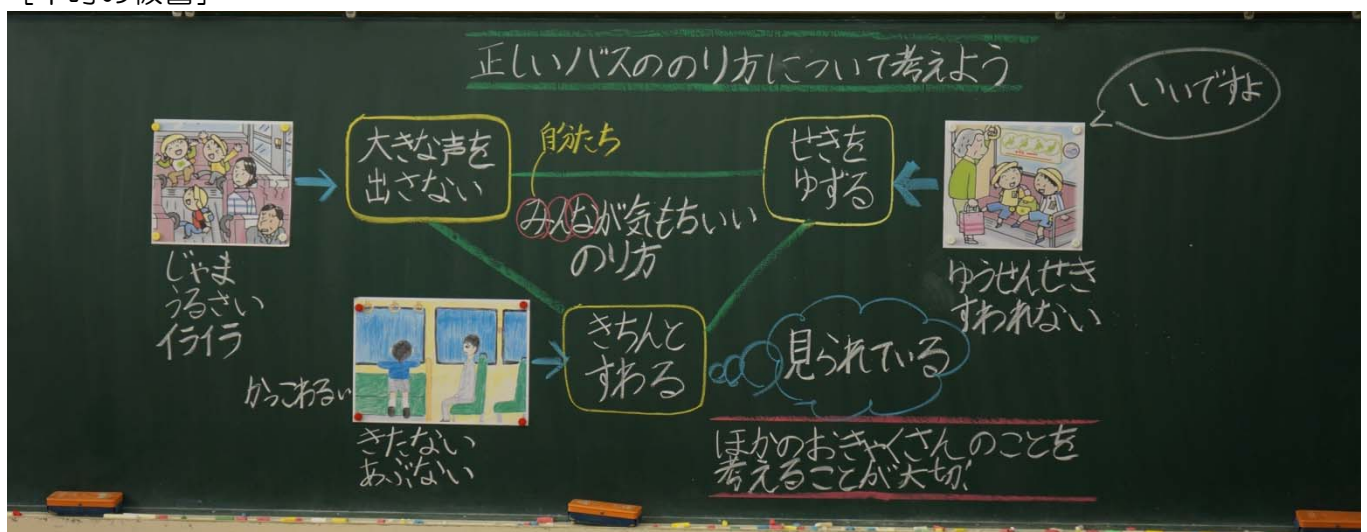 [本時の板書]
正しいバスののり方について考えよう
いいですよ
大きな声を
出さない
自分たち
せきを
ゆずる
みんなが気もちいい
のり方
じゃま
うるさい
イライラ
ゆうせんせき
すわれない
きちんと
すわる
見られている
かっこわるい
きたない
あぶない
ほかのおきゃくさんのことを
考えることが大切!